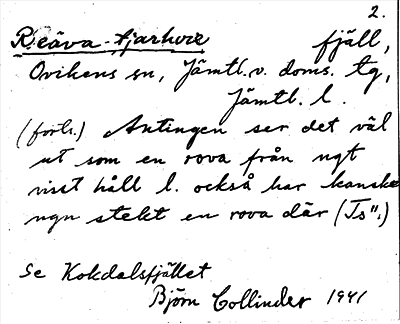 2.
Reäva-tjarhove fjäll,
Ovikens sn, Jämtl. v. doms. tg,
Jämtl. l.
(forts.) Antingen ser det väl
ut som en rova från ngt
visst håll l. också har kanske
ngn stekt en rova där (Ts".)
Se Kokdalsfjället
Björn Collinder 1941